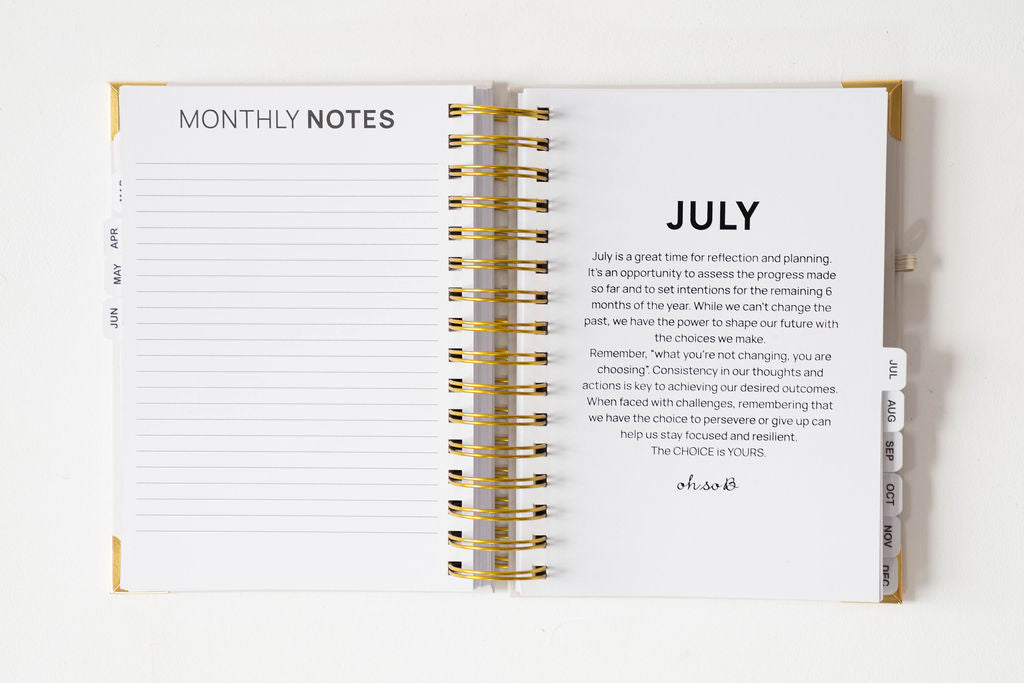 MONTHLY NOTES
APR
MAY
JUN
JULY
July is a great time for reflection and planning.
It's an opportunity to assess the progress made
so far and to set intentions for the remaining 6
months of the year. While we can't change the
past, we have the power to shape our future with
the choices we make.
Remember, "what you're not changing, you are
choosing". Consistency in our thoughts and
actions is key to achieving our desired outcomes.
When faced with challenges, remembering that
we have the choice to persevere or give up can
help us stay focused and resilient.
The CHOICE is YOURS.
oh so B
JUL
AUG
SEP
OCT
NOV
DEC